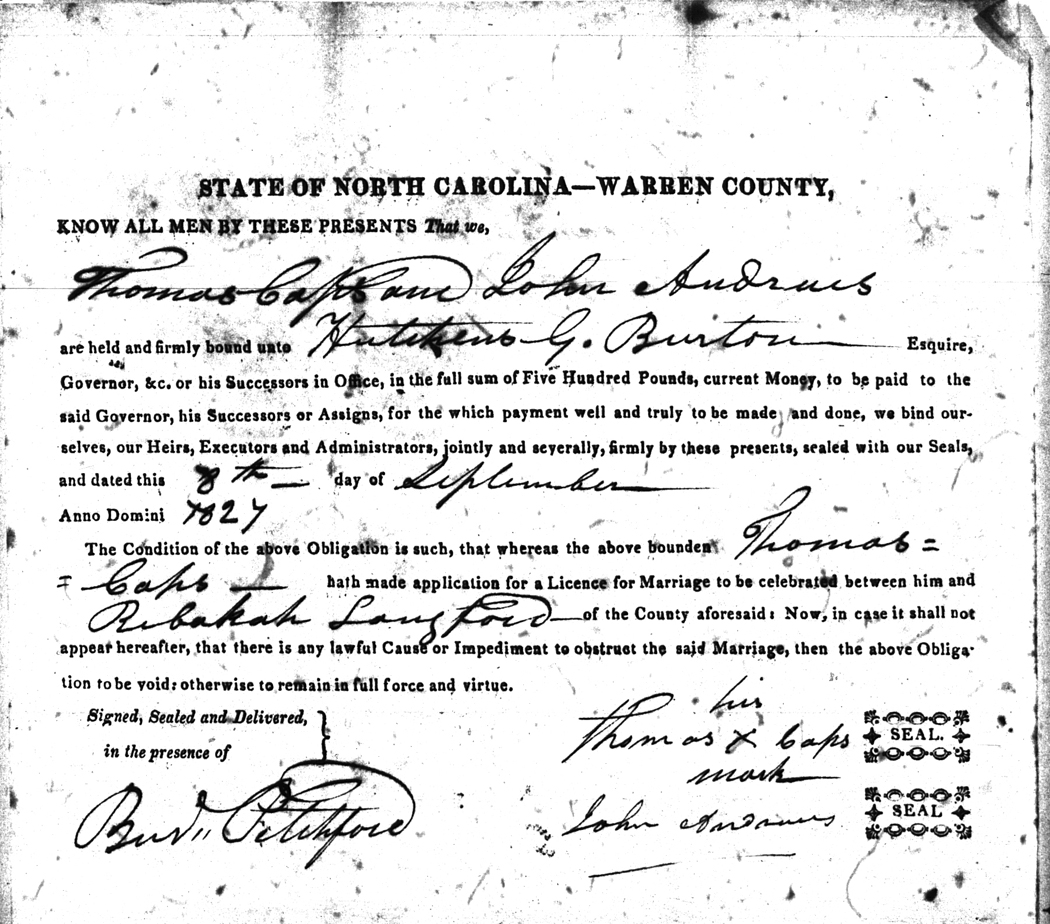 STATE OF NORTH CAROLINA—WARREN COUNTY,
KNOW ALL MEN BY THESE PRESENTS That we,
Thomas Caps and John Andrews
are held and firmly bound unto Hutchens G. Burton Esquire,
Governor, &c. or his Successors in Office, in the full sum of Five Hundred Pounds, current Money, to be paid to the
said Governor, his Successors or Assigns, for the which payment well and truly to be made and done, we bind our-
selves, our Heirs, Executors and Administrators, jointly and severally, firmly by these presents, sealed with our Seals,
and dated this 8th day of September
Anno Domini 1827
The Condition of the above Obligation is such, that whereas the above bounden Thomas =
= Caps hath made application for a Licence for Marriage to be celebrated between him and
Rebakah Langford of the County aforesaid: Now, in case it shall not
appear hereafter, that there is any lawful Cause or Impediment to obstruct the said Marriage, then the above Obliga-
tion to be void: otherwise to remain in full force and virtue.
Signed, Sealed and Delivered,
in the presence of
his
Thomas X Caps SEAL.
mark
Pitchford
John Andrews SEAL